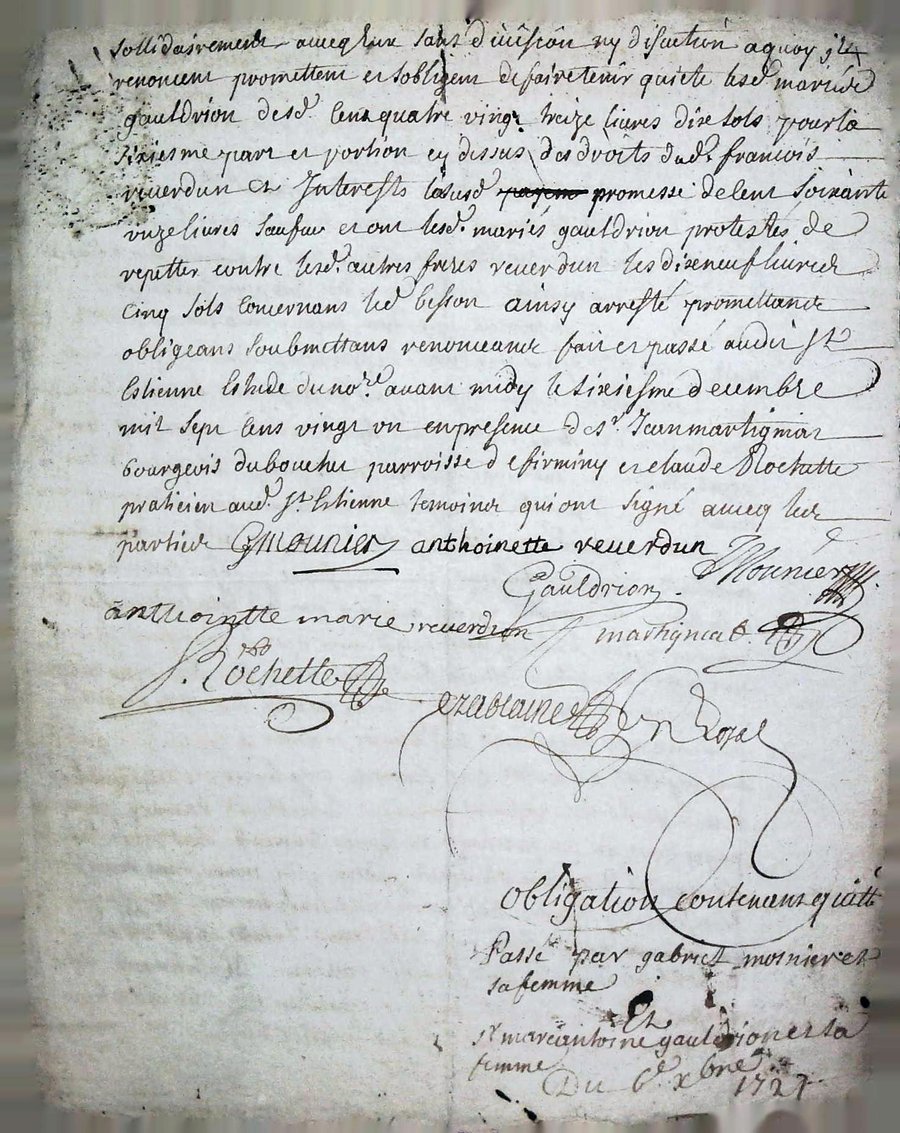 sollidairement avecq eux sans division ny discution aquoy ilz
renoncent promettent et sobligent defairetenir quiete lesd. mariés
gauldrion desd. Cent quatre vingt treize livres dix sols pour la
sixiesme part et portion cy dessus des droits dud. françois
reverdun et Interests lasusd. promesse de Cent soixante
unze livres sauf et ont lesd. mariés gauldrion protestés de
repetter contre lesd. autres freres reverdun les dixneuf livres
cinq sols Concernans led. besson ainsy arresté promettans
obligeans soubmettans renonceans fait et passé audit St
Estienne Estude du nore. avant midy le sixiesme decembre
mil sept Cens vingt un en presence de sr. Jean martigniat
bourgeois du bouchet parroisse de firminy et claude Rochette
praticien aud. St. Estienne temoins qui ont signé avecq les
parties GMounier anthoinette reverdun
Mounier
Gauldrion
anthointte marie reverdion martigniat
Rochette
ezablaine Royal
obligation contenant quitt
Passé par gabriel mosnier et
sa femme
Et
sr marcantoine gauldrion et sa
femme
Du 6e xbre 1721